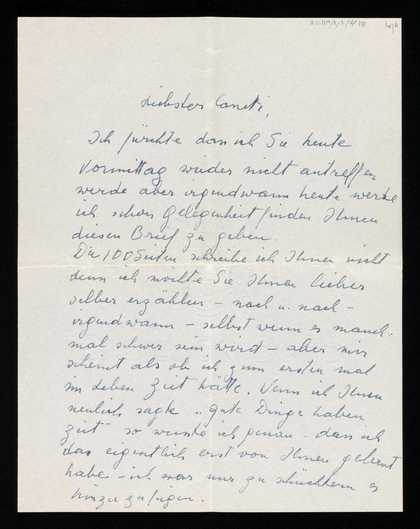 Liebster Canetti,
Ich fürchte dass ich Sie heute
Vormittag wieder nicht antreffen
werde aber irgendwann heute werde
ich schon Gelegenheit finden Ihnen
diesen Brief zu geben.
Die 100 Seiten schreibe ich Ihnen nicht
denn ich möchte Sie Ihnen lieber
selber erzählen – nach u. nach –
irgendwann – selbst wenn es manch-
mal schwer sein wird – aber mir
scheint als ob ich zum ersten mal
im Leben Zeit hätte. Wenn ich Ihnen
neulich sagte „gute Dinge haben
Zeit" so wusste ich genau – dass ich
das eigentlich erst von Ihnen gelernt
habe – ich war nur zu schüchtern es
hinzuzufügen.